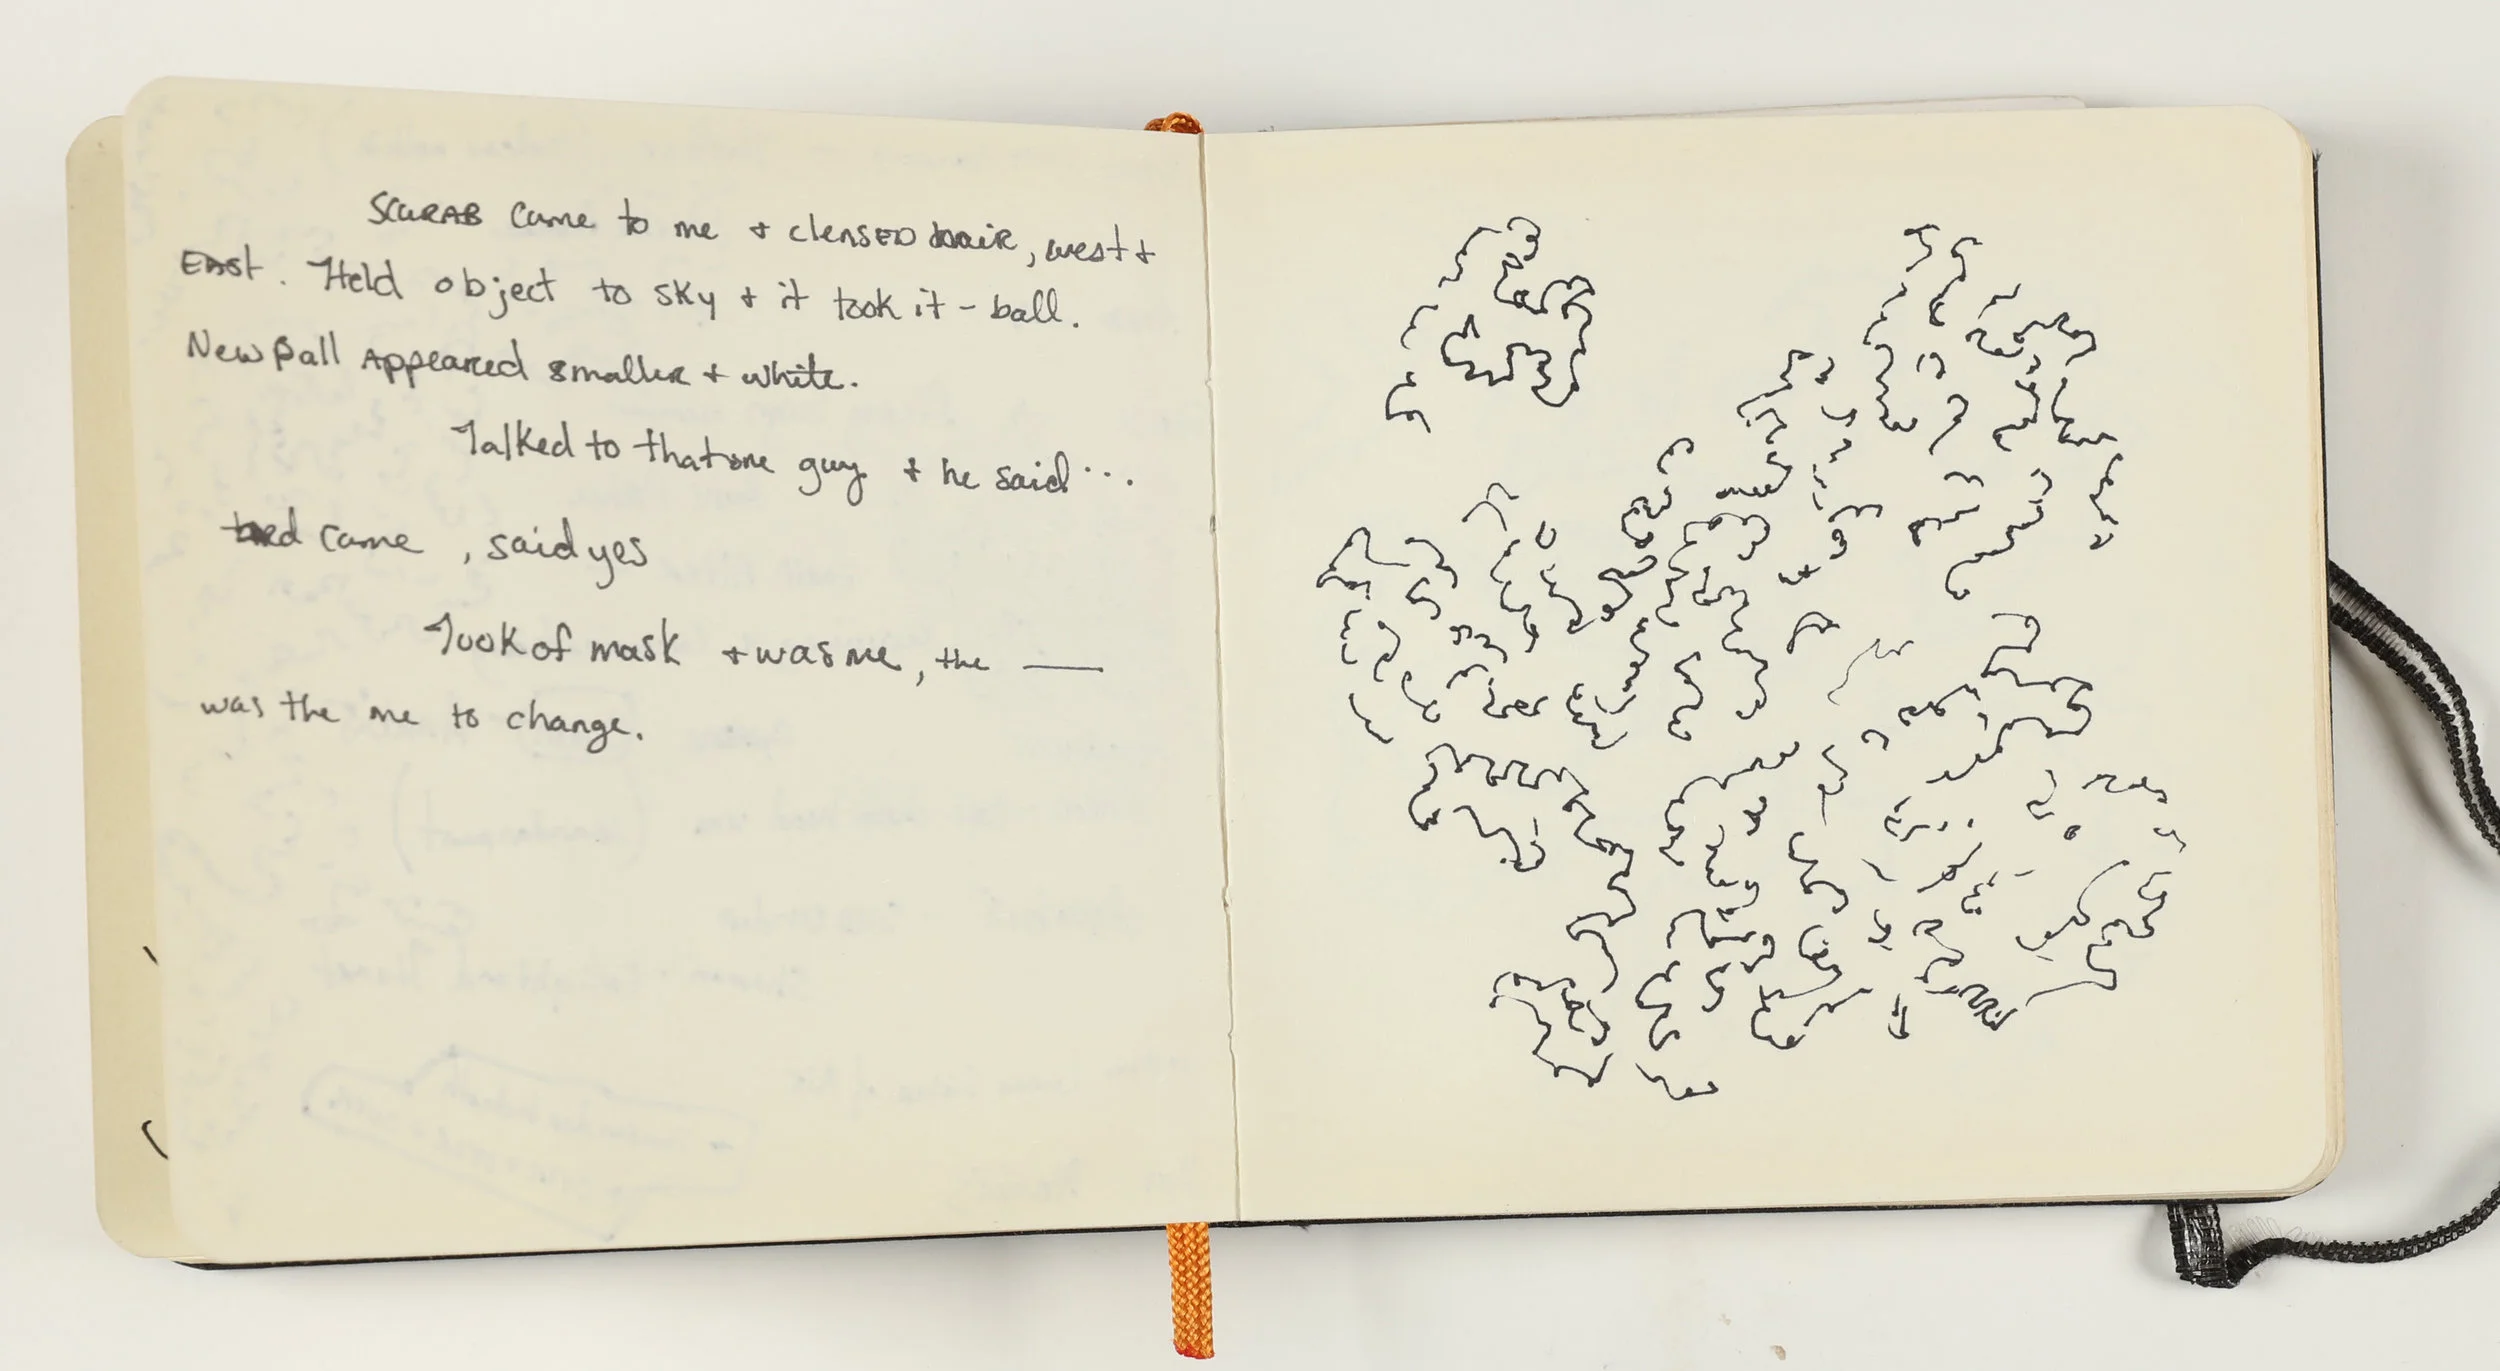 SCARAB came to me + clensED hair, west +
East. Held object to sky + it took it - ball.
New Ball Appeared smaller + white.
Talked to that one guy + he said...
came, said yes
Took of mask + was me, the ___
was the me to change.